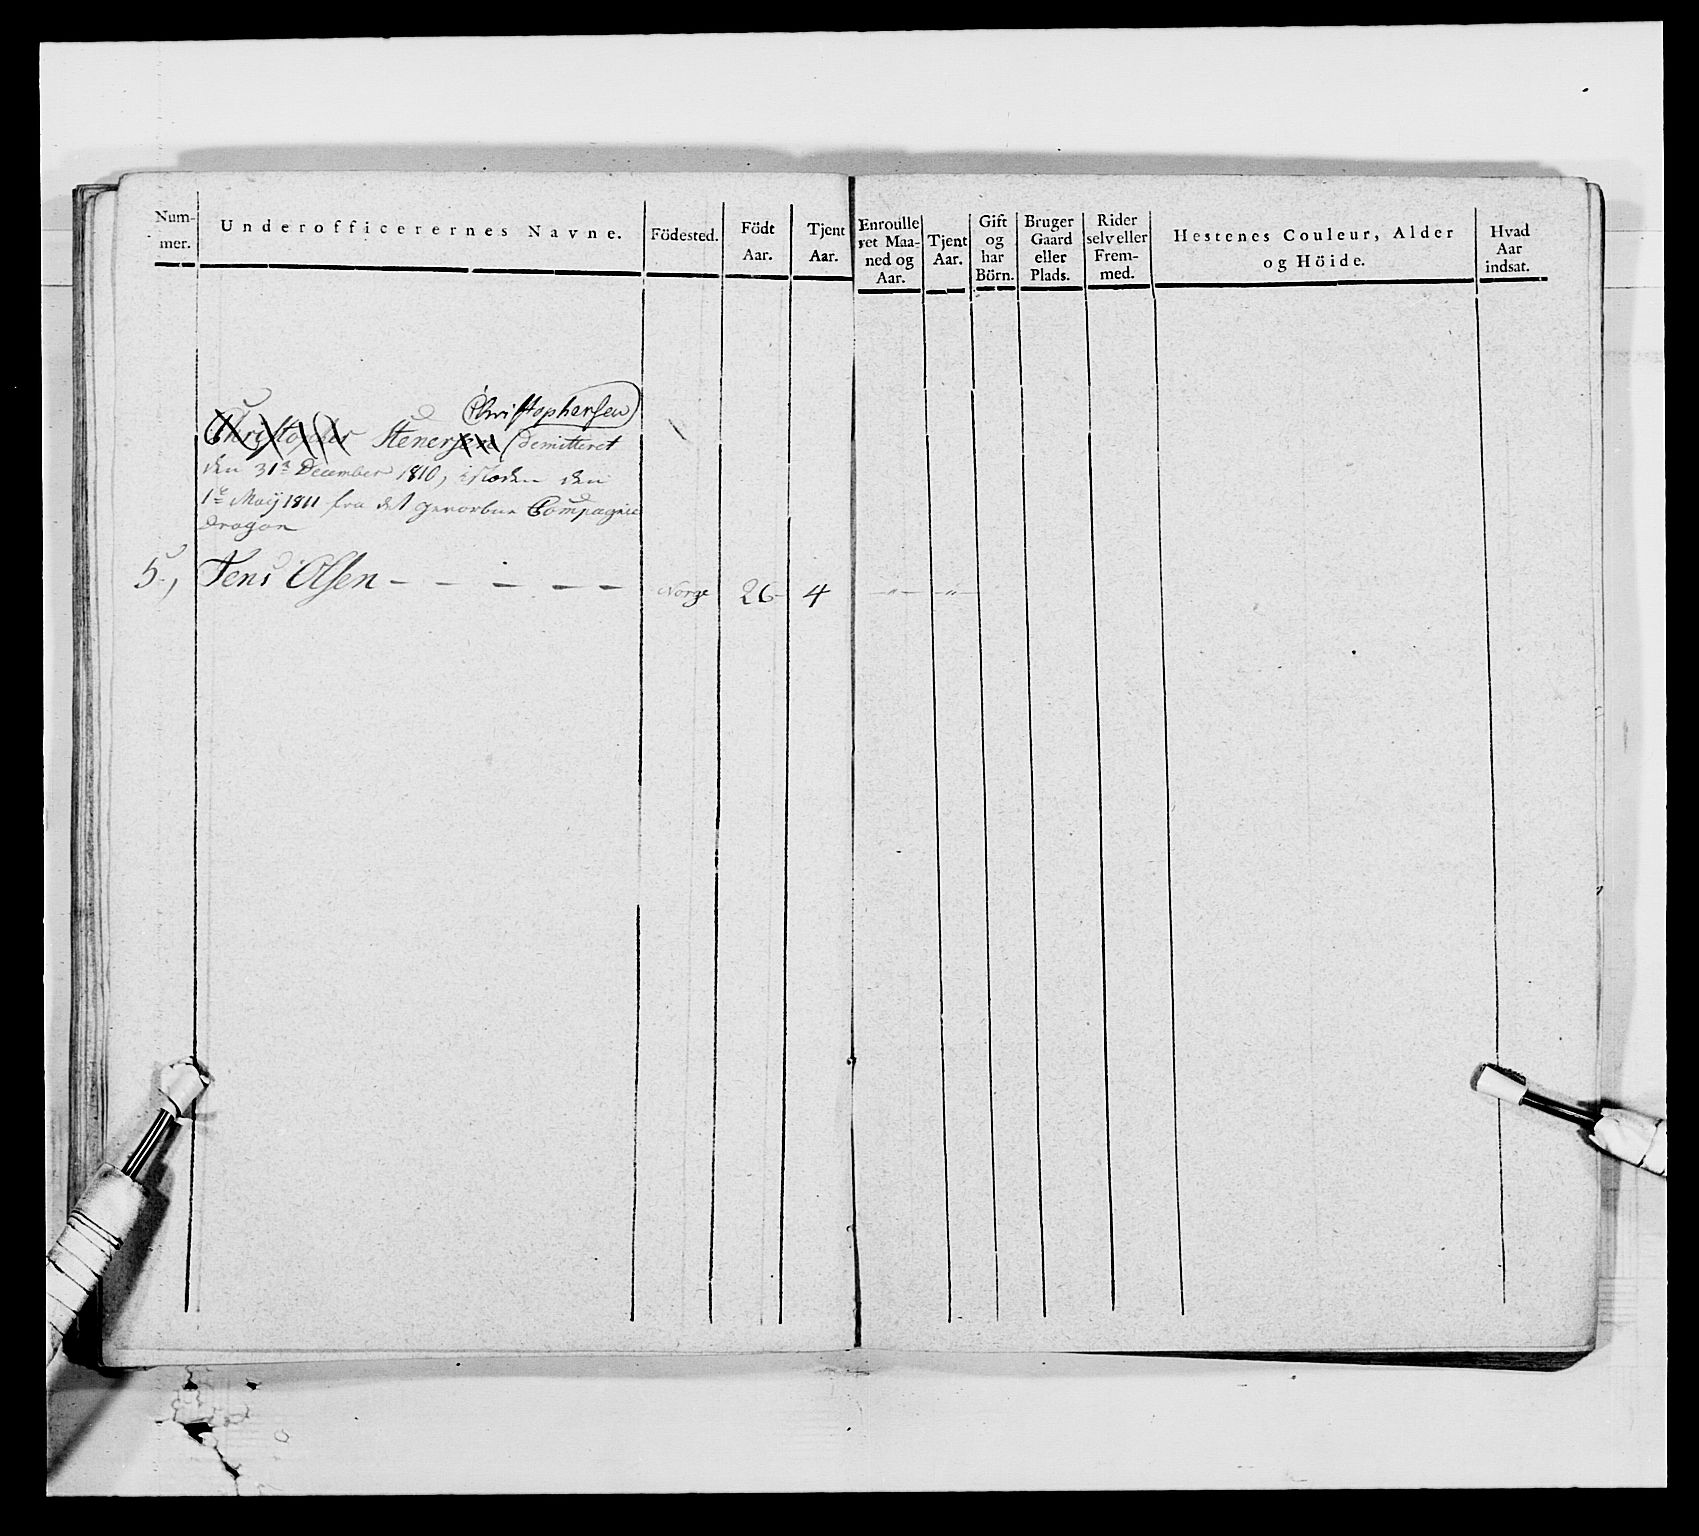 Num-
mer.
Underofficerernes Navne.
Födested.
Födt
Aar.
Tjent
Aar.
Enroulle
ret Maa-
ned og
Aar.
Tjent
Aar.
Gift
og
har
Börn.
Bruger
Gaard
eller
Plads.
Rider
selv eller
Frem-
med.
Hestenes Couleur, Alder
og Höide.
Hvad
Aar
indsat.
Christophersen
Christopher Stenersen (demitteret
den 31te December 1810, i Steden den
1te Maij 1811 fra det gevorbne Compagnie
Dragon
5., Jens Olsen - - - - - Norge 26 4 - " - - " -